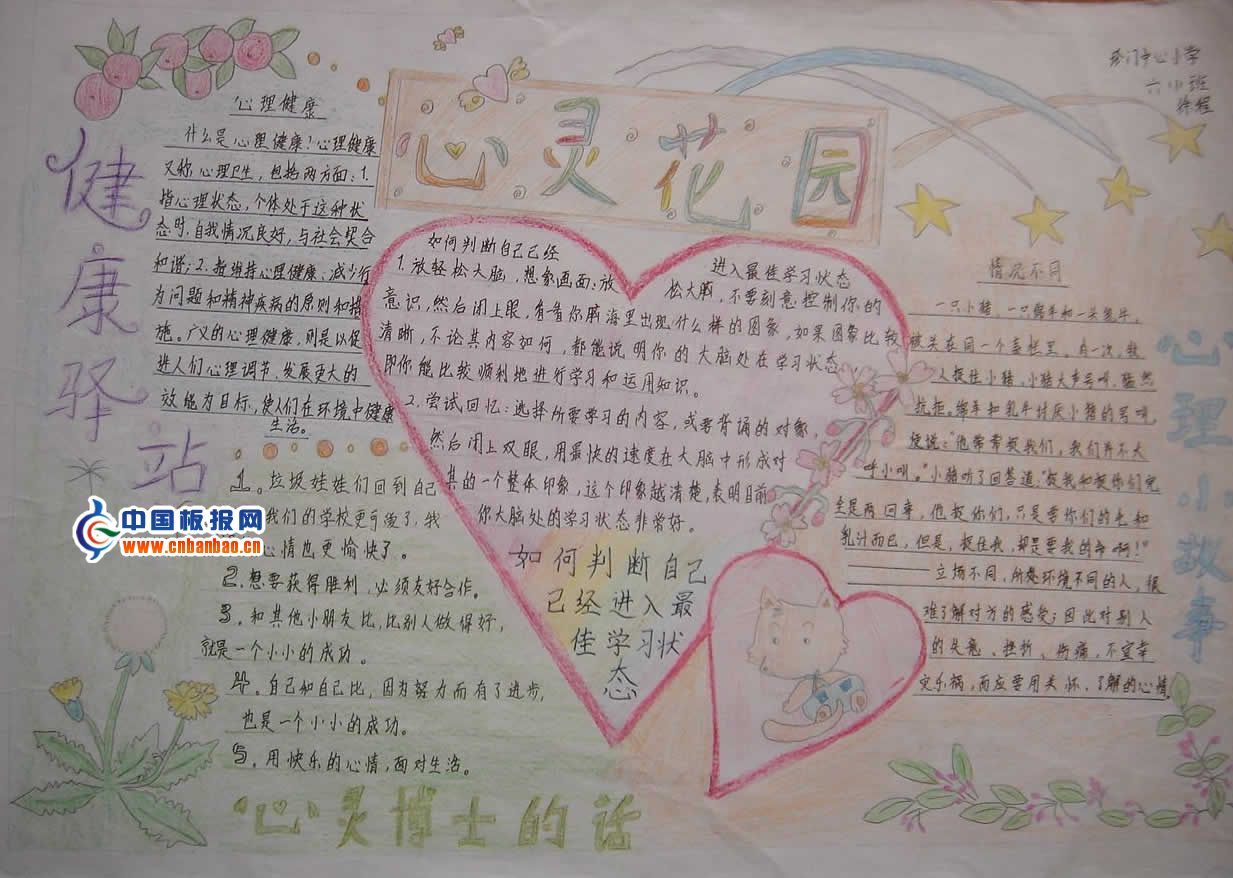 心灵花园
中心小学
健康驿站
心理健康
什么是心理健康?心理健康
又称心理卫生,包括两方面:1.
指心理状态,个体处于这种状
态时,自我情况良好,与社会契合
和谐;2.指维持心理健康、减少行
为问题和精神疾病的原则和措
施。广义的心理健康,则是以促
进人们心理调节、发展更大的
效能为目标,使人们在环境中健康
生活。
如何判断自己已经
进入最佳学习状态
1.放轻松大脑,想象画面:放
松大脑,不要刻意控制你的
意识,然后闭上眼,看看你脑海里出现什么样的图象,如果图象比较
清晰,不论其内容如何,都能说明你的大脑处在学习状态
即你能比较顺利地进行学习和运用知识。
2.尝试回忆:选择所要学习的内容,或要背诵的对象,
然后闭上双眼,用最快的速度在大脑中形成对
其的一个整体印象,这个印象越清楚,表明目前
你大脑处的学习状态非常好。
如何判断自己
已经进入最
佳学习状
态
心理小故事
情况不同
一只小猪、一只绵羊和一头乳牛,
被关在同一个畜栏里。有一次,牧
人捉住小猪,小猪大声号叫,猛烈
抗拒。绵羊和乳牛讨厌小猪的号叫,
便说:“他常常捉我们,我们并不大
呼小叫。”小猪听了回答道:“捉我和捉你们完
全是两回事,他捉你们,只是要你们的毛和
乳汁而已,但是,捉住我,却是要我的命啊!”
立场不同,所处环境不同的人,很
难了解对方的感受;因此对别人
的失意、挫折、伤痛,不宜幸
灾乐祸,而应要用关怀、了解的心情。
1。垃圾娃娃们回到自己
我们的学校更
心情也更愉快了。
2。想要获得胜利,必须友好合作。
3。和其他小朋友比,比别人做得好,
就是一个小小的成功。
4。自己和自己比,因为努力而有了进步,
也是一个小小的成功。
5。用快乐的心情,面对生活。
心灵博士的话
中国板报网
www.cnbanbao.cn